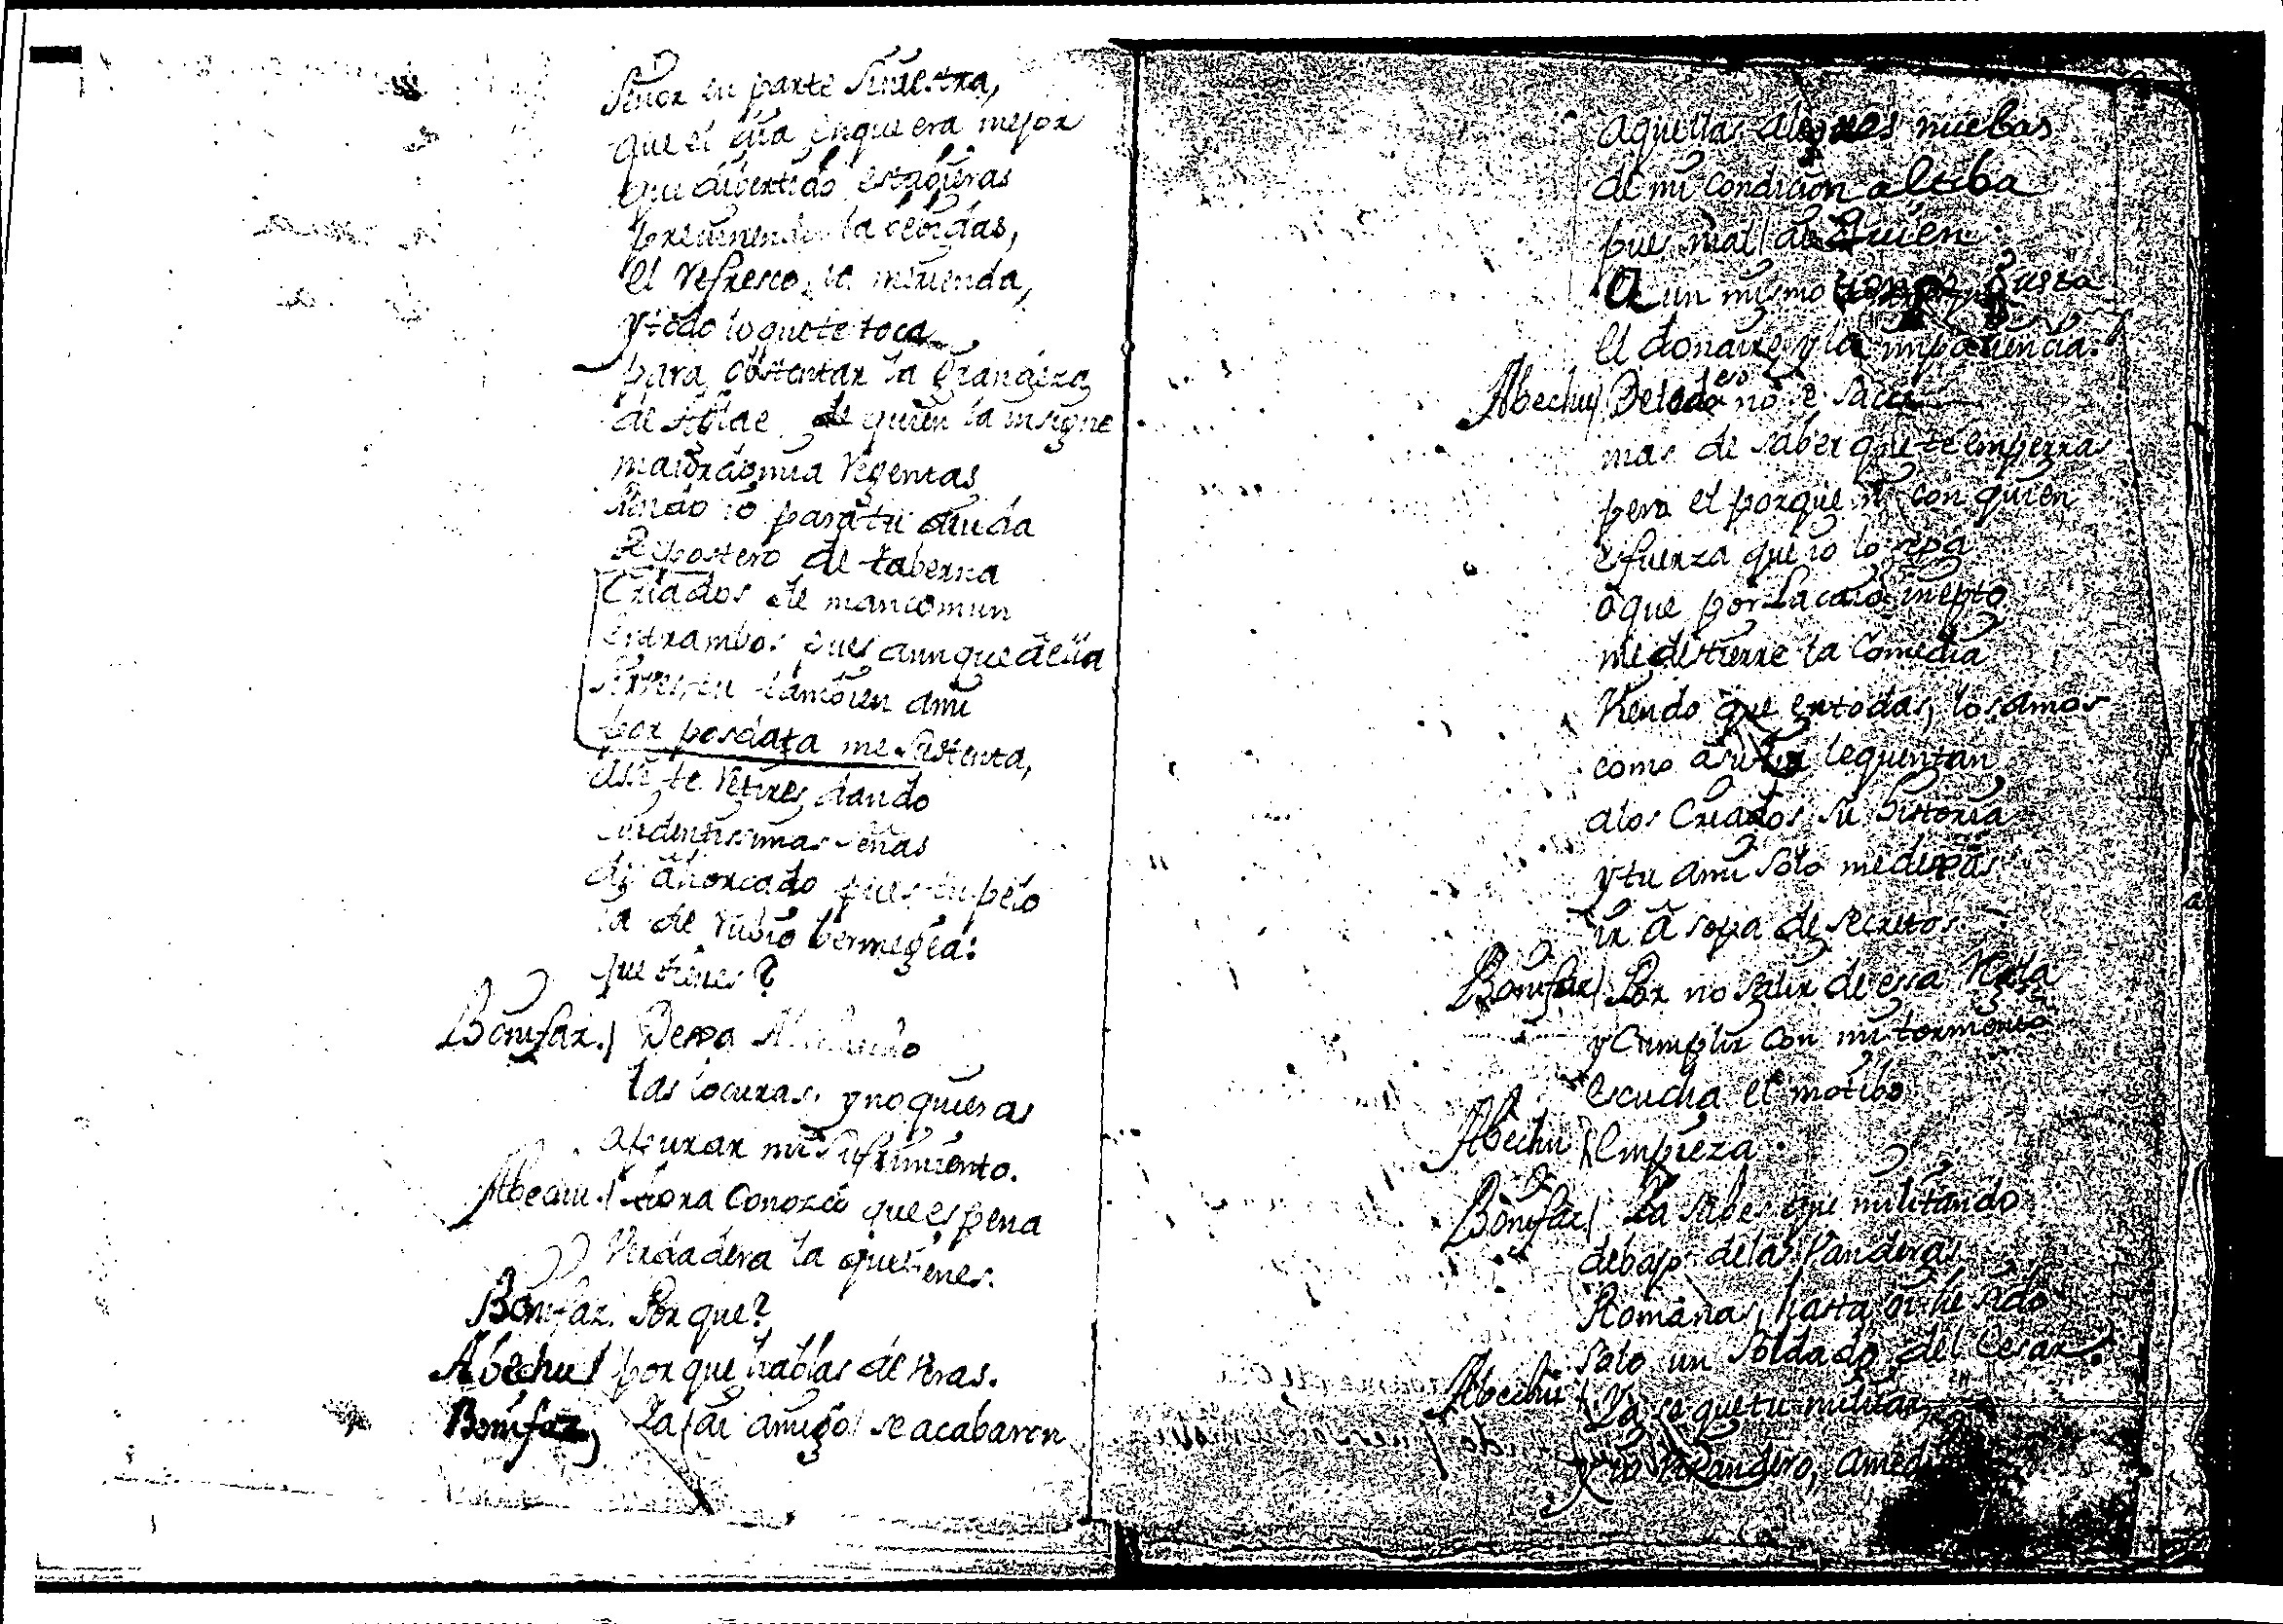 Señor en parte siniestra,
que el dia en que era mejor
que divertido estubieras
previniendo la bebidas,
el refresco, la merienda,
y todo lo que te toca
para obstentar la grandeza
de Aglae de quien la insigne
maiordomia regentas
siendo io para tu aiuda
Repostero de taberna
Criados de mancomun
entrambos pues aunque a ella
sirves, tu tambien ami
por posdata me sustenta,
assi te retires dando
evidentissimas señas
de ahorcado pues tu pelo
ia de rubio bermegea:
que tienes?
Bonifaz. Dexa
las locuras, y no quieras
apurar mi sufrimiento.
Abechu. Aora conozco que es pena
Verdadera la que tienes.
Bonifaz. Por que?
Abechu por que hablas de Veras.
Bonifaz Ya (ai amigo) se acabaron
aquellas alegres nuebas
de mi condicion altiba
pues mal de quien
A un mismo tiempo gusta
el donaire y la impaciencia.
Abechu De todo eso no e sacado
mas de saber que te emperras
pero el porque ni con quien
es fuerza que io lo sepa
o que por Lacaio inepto
me destierre la Comedia
Viendo que en todas, los amos
como le quentan
a los Criados su historia
y tu ami solo me dexas
ir a sopa de secretos.
Bonifaz Por no salir de essa Regla
y Cumplir con mi tormento
escucha el motibo
Abechu Empieza.
Bonifaz Ya sabes que militando
debajo de las Vanderas
Romanas, hasta oi he sido
solo un Soldado del Cesar.
Abechu Ya se que tu militar,
y io Vivandero, a